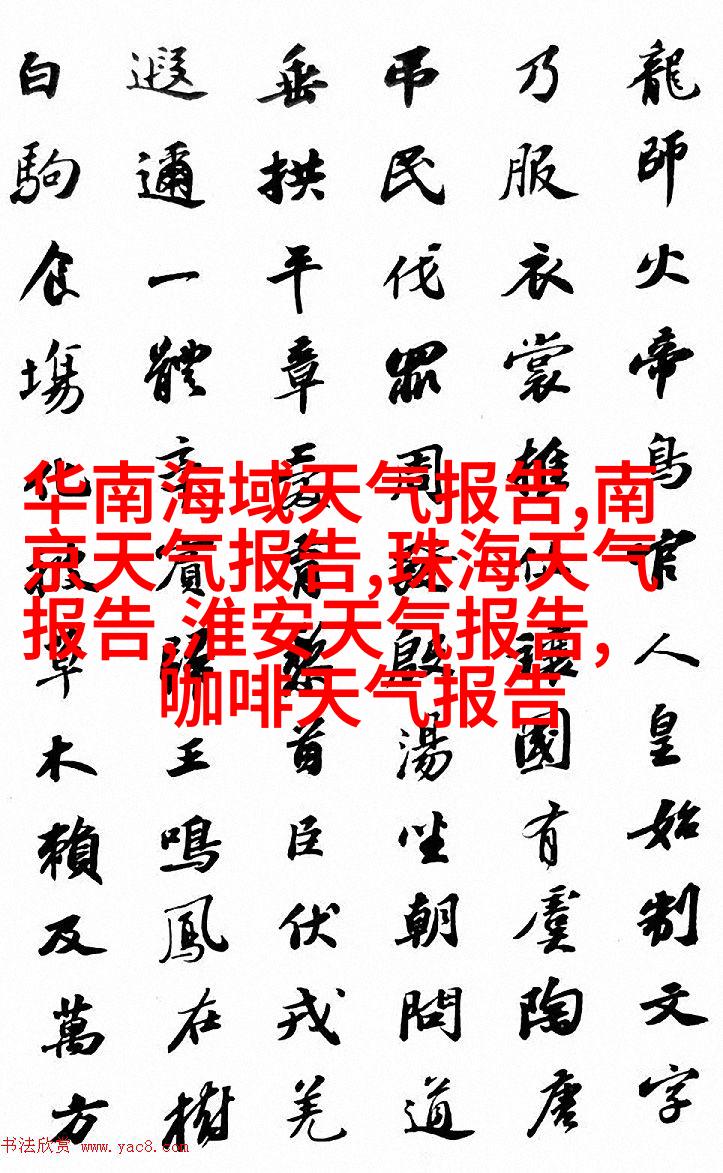 龍師火帝鳥官人皇始制文字
乃服衣裳推位讓國有虞陶唐
吊民伐罪周發殷湯坐朝問道
垂拱平章愛育黎首臣伏戎羌
遐邇一體率賓歸王鳴鳳在樹
白駒食塲化被草木賴及萬方
华南海域天气报告,南
京天气报告,珠海天气
报告,淮安天气报告,
咖啡天气报告
书法欣赏 www.yac8.com